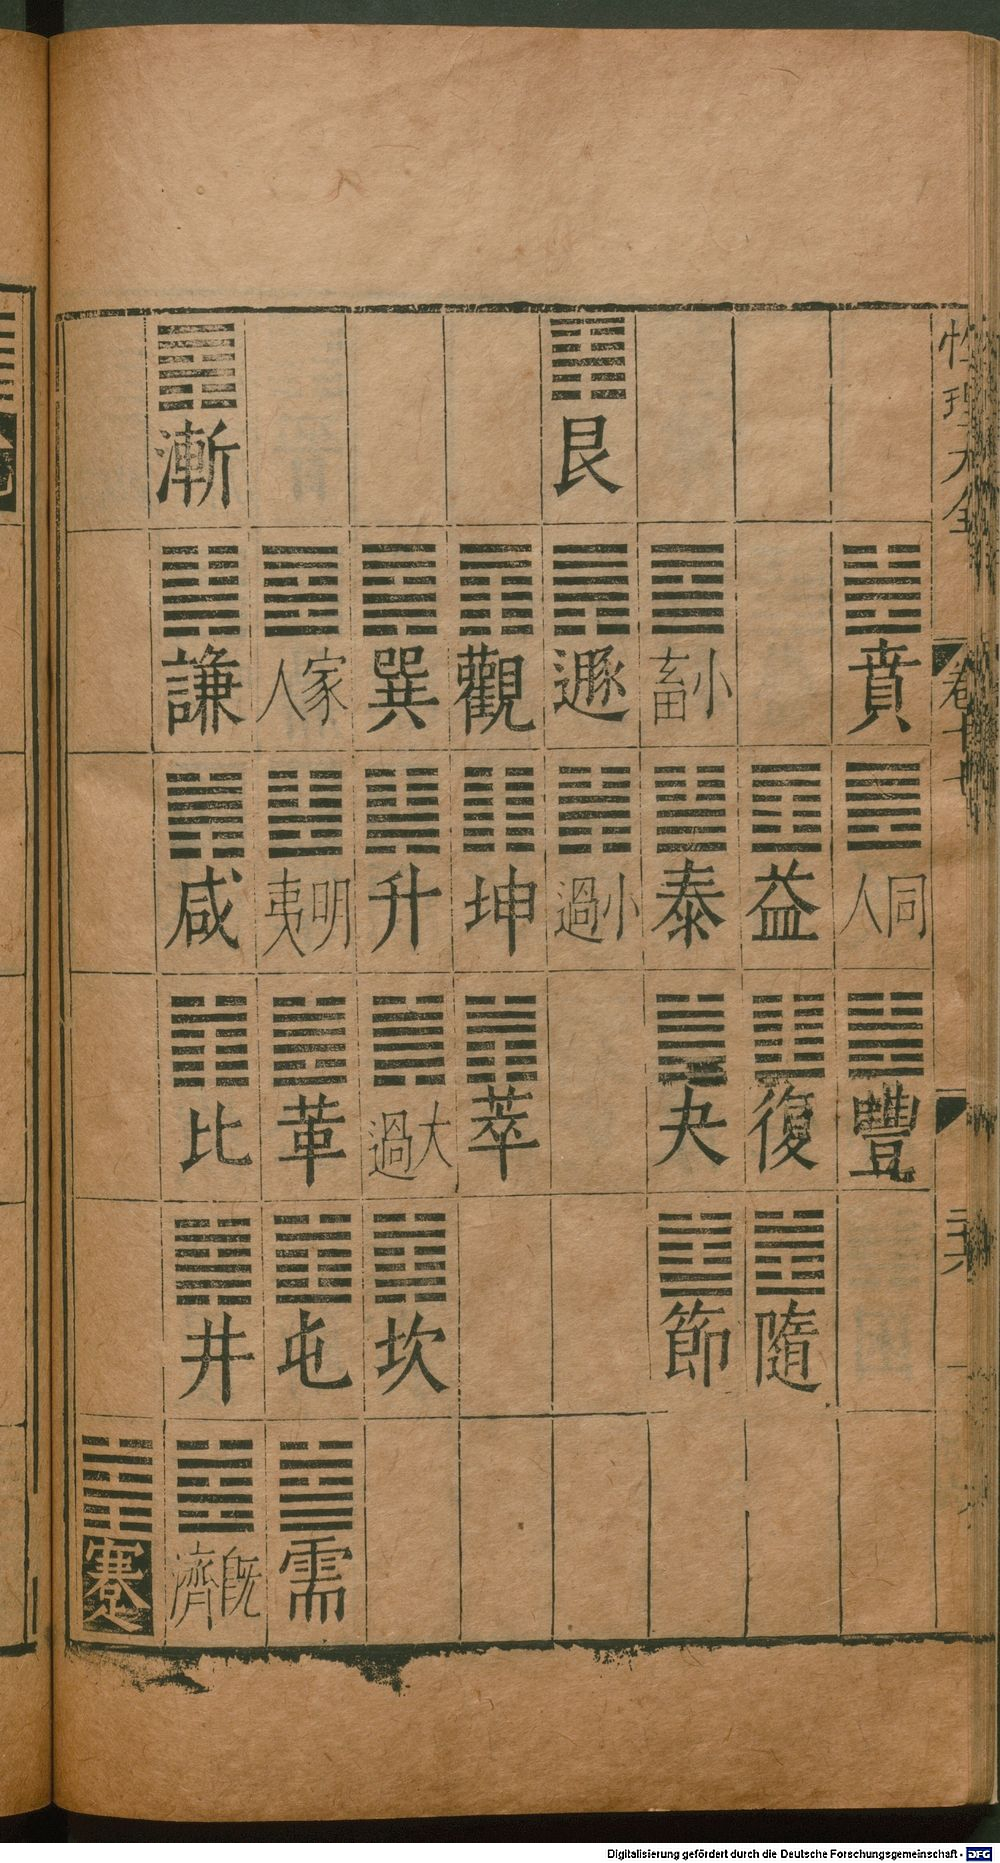 性理大全
卷十七
二十六
賁
同人
豐
益
復
隨
小畜
泰
夬
節
艮
遯
小過
觀
坤
萃
巽
升
大過
坎
家人
明夷
革
屯
需
漸
謙
咸
比
井
旣濟
蹇
Digitalisierung gefördert durch die Deutsche Forschungsgemeinschaft - DFG